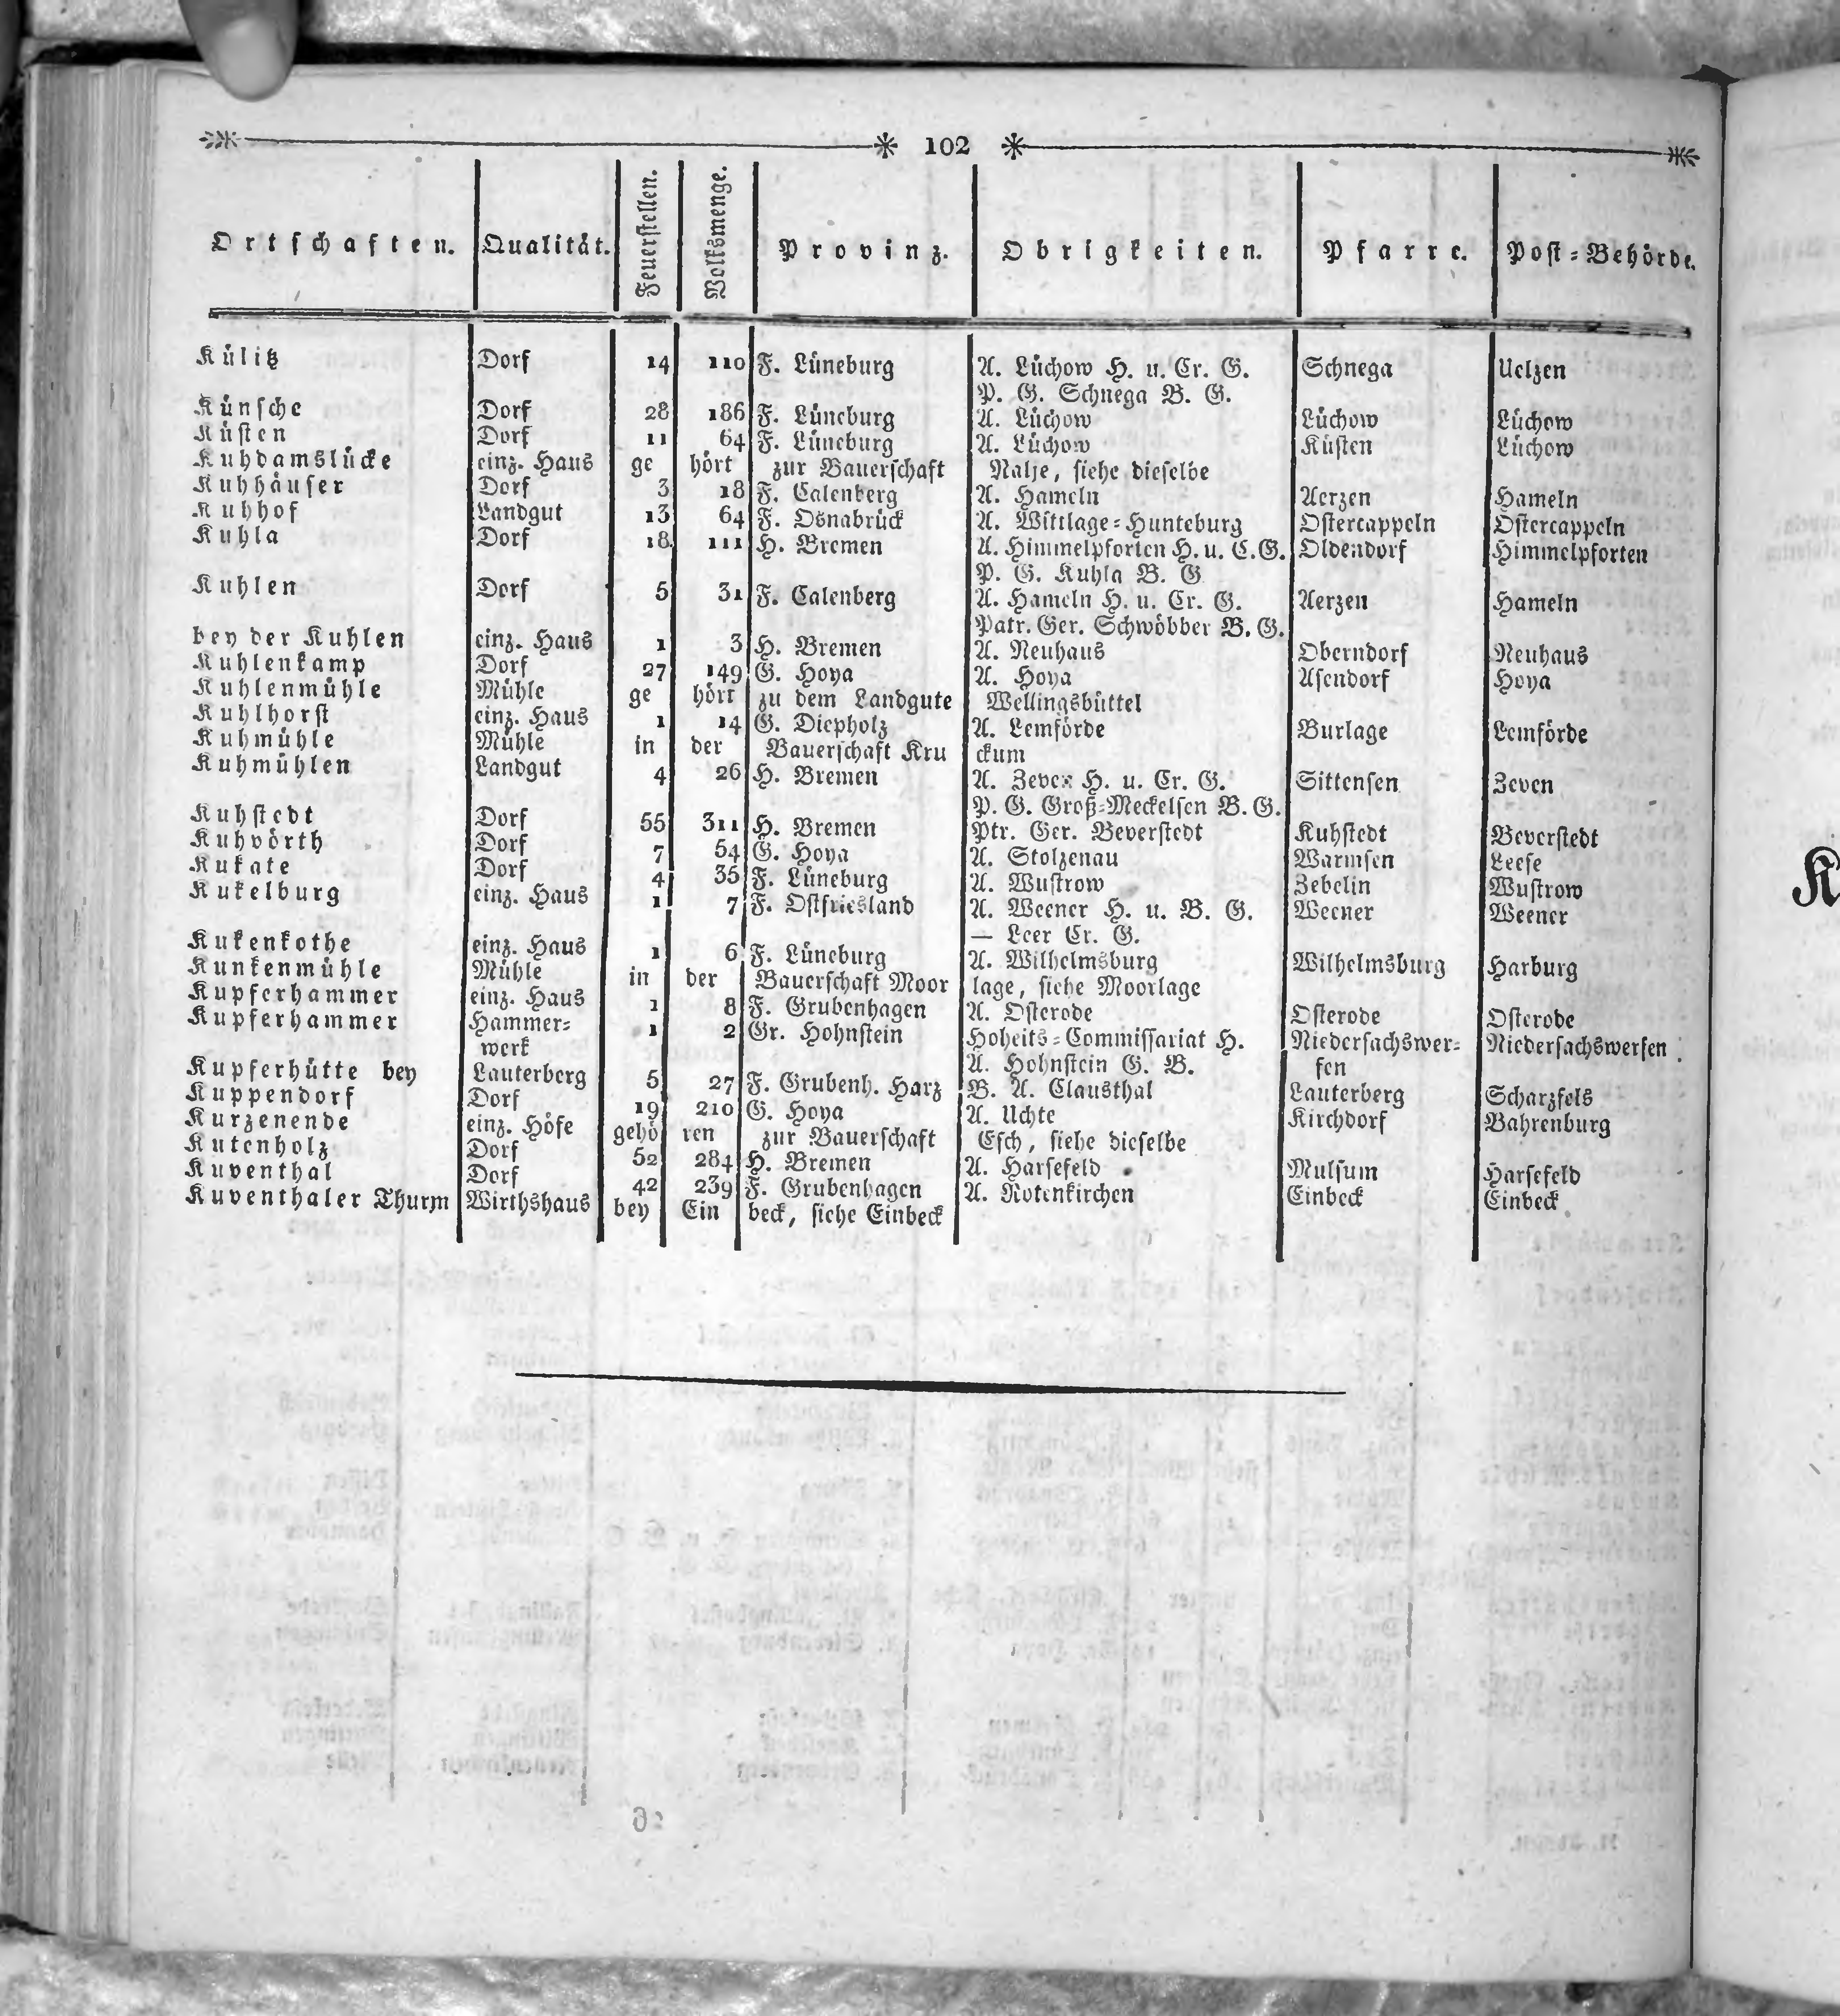 102
Ortschaften. Qualität. Feuerstellen. Volksmenge. Provinz. Obrigkeiten. Pfarre. Post=Behörde.
Külitz Dorf 14 110 F. Lüneburg A. Lüchow H. u. Cr. G. Schnega Uelzen
P. G. Schnega B. G.
Künsche Dorf 28 186 F. Lüneburg A. Lüchow Lüchow Lüchow
Küsten Dorf 11 64 F. Lüneburg A. Lüchow Küsten Lüchow
Kuhdamslücke einz. Haus ge hört zur Bauerschaft Nalje, siehe dieselbe
Kuhhäuser Dorf 3 18 F. Calenberg A. Hameln Aerzen Hameln
Kuhhof Landgut 13 64 F. Osnabrück A. Wittlage=Hunteburg Ostercappeln Ostercappeln
Kuhla Dorf 18 111 H. Bremen A. Himmelpforten H. u. C. G. Oldendorf Himmelpforten
P. G. Kuhla B. G
Kuhlen Dorf 5 31 F. Calenberg A. Hameln H. u. Cr. G. Aerzen Hameln
Patr. Ger. Schwöbber B. G.
bey der Kuhlen einz. Haus 1 3 H. Bremen A. Neuhaus Oberndorf Neuhaus
Kuhlenkamp Dorf 27 149 G. Hoya A. Hoya Asendorf Hoya
Kuhlenmühle Mühle ge hört zu dem Landgute Wellingsbüttel
Kuhlhorst einz. Haus 1 14 G. Diepholz A. Lemförde Burlage Lemförde
Kuhmühle Mühle in der Bauerschaft Kru ckum
Kuhmühlen Landgut 4 26 H. Bremen A. Zeven H. u. Cr. G. Sittensen Zeven
P. G. Groß=Meckelsen B. G.
Kuhstedt Dorf 55 311 H. Bremen Ptr. Ger. Beverstedt Kuhstedt Beverstedt
Kuhvörth Dorf 7 54 G. Hoya A. Stolzenau Warmsen Leese
Kukate Dorf 4 35 F. Lüneburg A. Wustrow Zebelin Wustrow
Kukelburg einz. Haus 1 7 F. Ostfriesland A. Weener H. u. B. G. Weener Weener
— Leer Cr. G.
Kukenkothe einz. Haus 1 6 F. Lüneburg A. Wilhelmsburg Wilhelmsburg Harburg
Kunkenmühle Mühle in der Bauerschaft Moor lage, siehe Moorlage
Kupferhammer einz. Haus 1 8 F. Grubenhagen A. Osterode Osterode Osterode
Kupferhammer Hammer= 1 2 Gr. Hohnstein Hoheits=Commissariat H. Niedersachswer= Niedersachswerfen
werk A. Hohnstein G. B. fen
Kupferhütte bey Lauterberg 5 27 F. Grubenh. Harz B. A. Clausthal Lauterberg Scharzfels
Kuppendorf Dorf 19 210 G. Hoya A. Uchte Kirchdorf Bahrenburg
Kurzenende einz. Höfe gehö ren zur Bauerschaft Esch, siehe dieselbe
Kutenholz Dorf 52 284 H. Bremen A. Harsefeld Mulsum Harsefeld
Kuventhal Dorf 42 239 F. Grubenhagen A. Rotenkirchen Einbeck Einbeck
Kuventhaler Thurm Wirthshaus bey Ein beck, siehe Einbeck
K